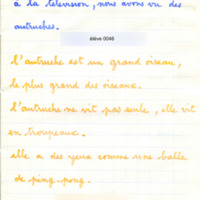 à la télévision, nous avons vu des
autruches.
élève 0046
l'autruche est un grand oiseau,
le plus grand des oiseaux.
l'autruche ne vit pas seule, elle vit
en troupeaux.
elle a des yeux comme une balle
de ping-pong.